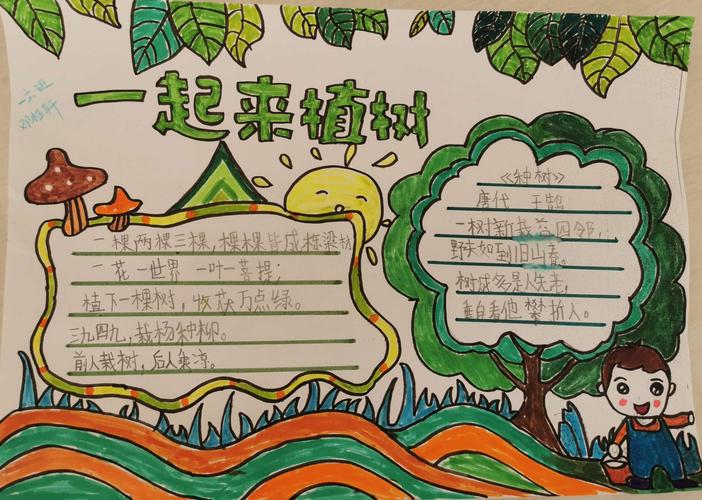 一起来植树
一六班
一棵两棵三棵，棵棵皆成栋梁材
一花一世界 一叶一菩提；
植下一棵树，收获万点绿。
三九四九，栽杨种柳。
前人栽树，后人乘凉。
《种树》
唐代 于鹄
一树新栽益四邻，
野夫如到旧山春。
树成多是人先老，
垂白看他攀折人。